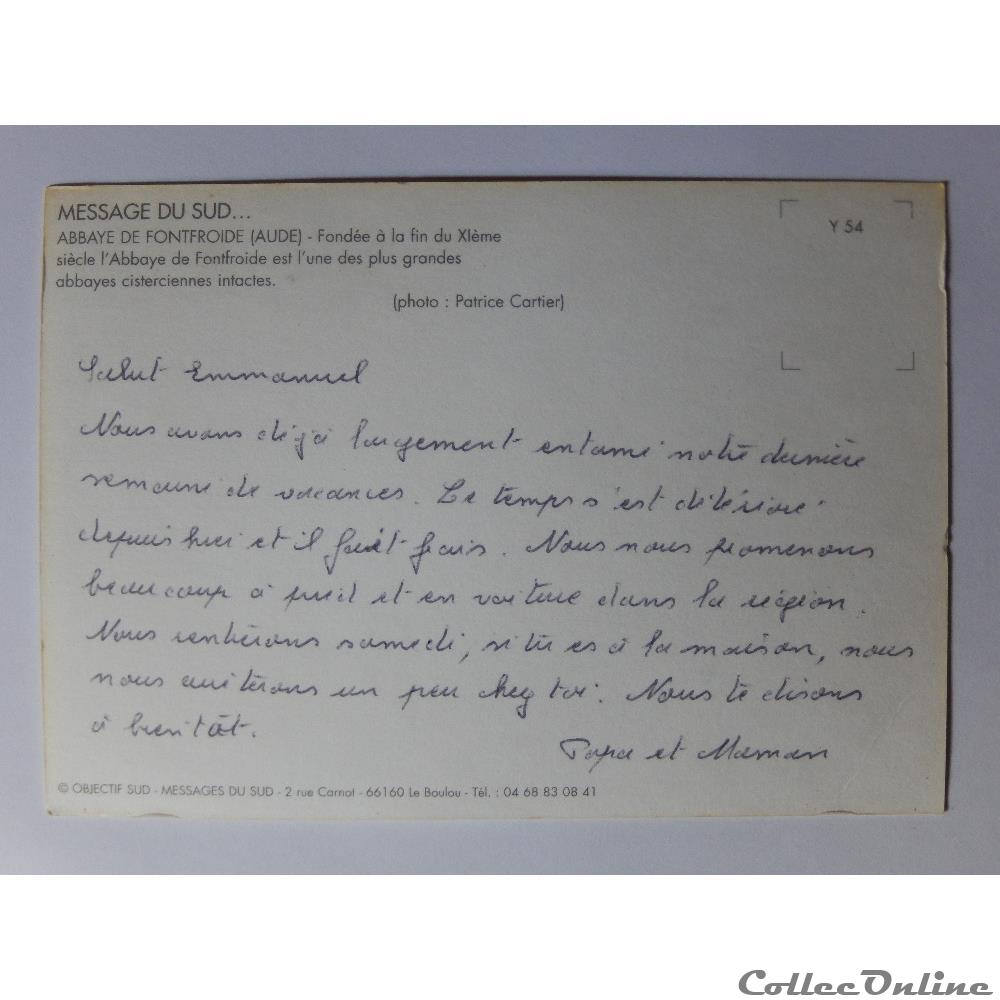 MESSAGE DU SUD...
Y 54
ABBAYE DE FONTFROIDE (AUDE) - Fondée à la fin du XIème
siècle l'Abbaye de Fontfroide est l'une des plus grandes
abbayes cisterciennes intactes.
(photo : Patrice Cartier)
Salut Emmanuel
Nous avons déjà largement entamé notre dernière
semaine de vacances. Le temps s'est détérioré
depuis hier et il fait frais. Nous nous promenons
beaucoup à pied et en voiture dans la région.
Nous rentrerons samedi, si tu es à la maison, nous
nous arrêterons un peu chez toi. Nous te disons
à bientôt.
Papa et Maman
© OBJECTIF SUD - MESSAGES DU SUD - 2 rue Carnot - 66160 Le Boulou - Tél. : 04 68 83 08 41
CollecOnline